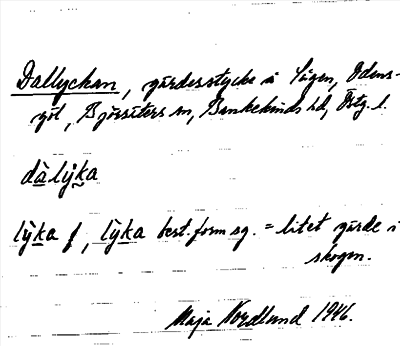 Dallyckan, gärdesstycke i Sågen, Odens-
göl, Björsäters sn, Bankekinds hd, Östg. l.
dàlyka
lỳka f, lỳka best. form sg. = litet gärde i
skogen.
Maja Nordlund 1946.